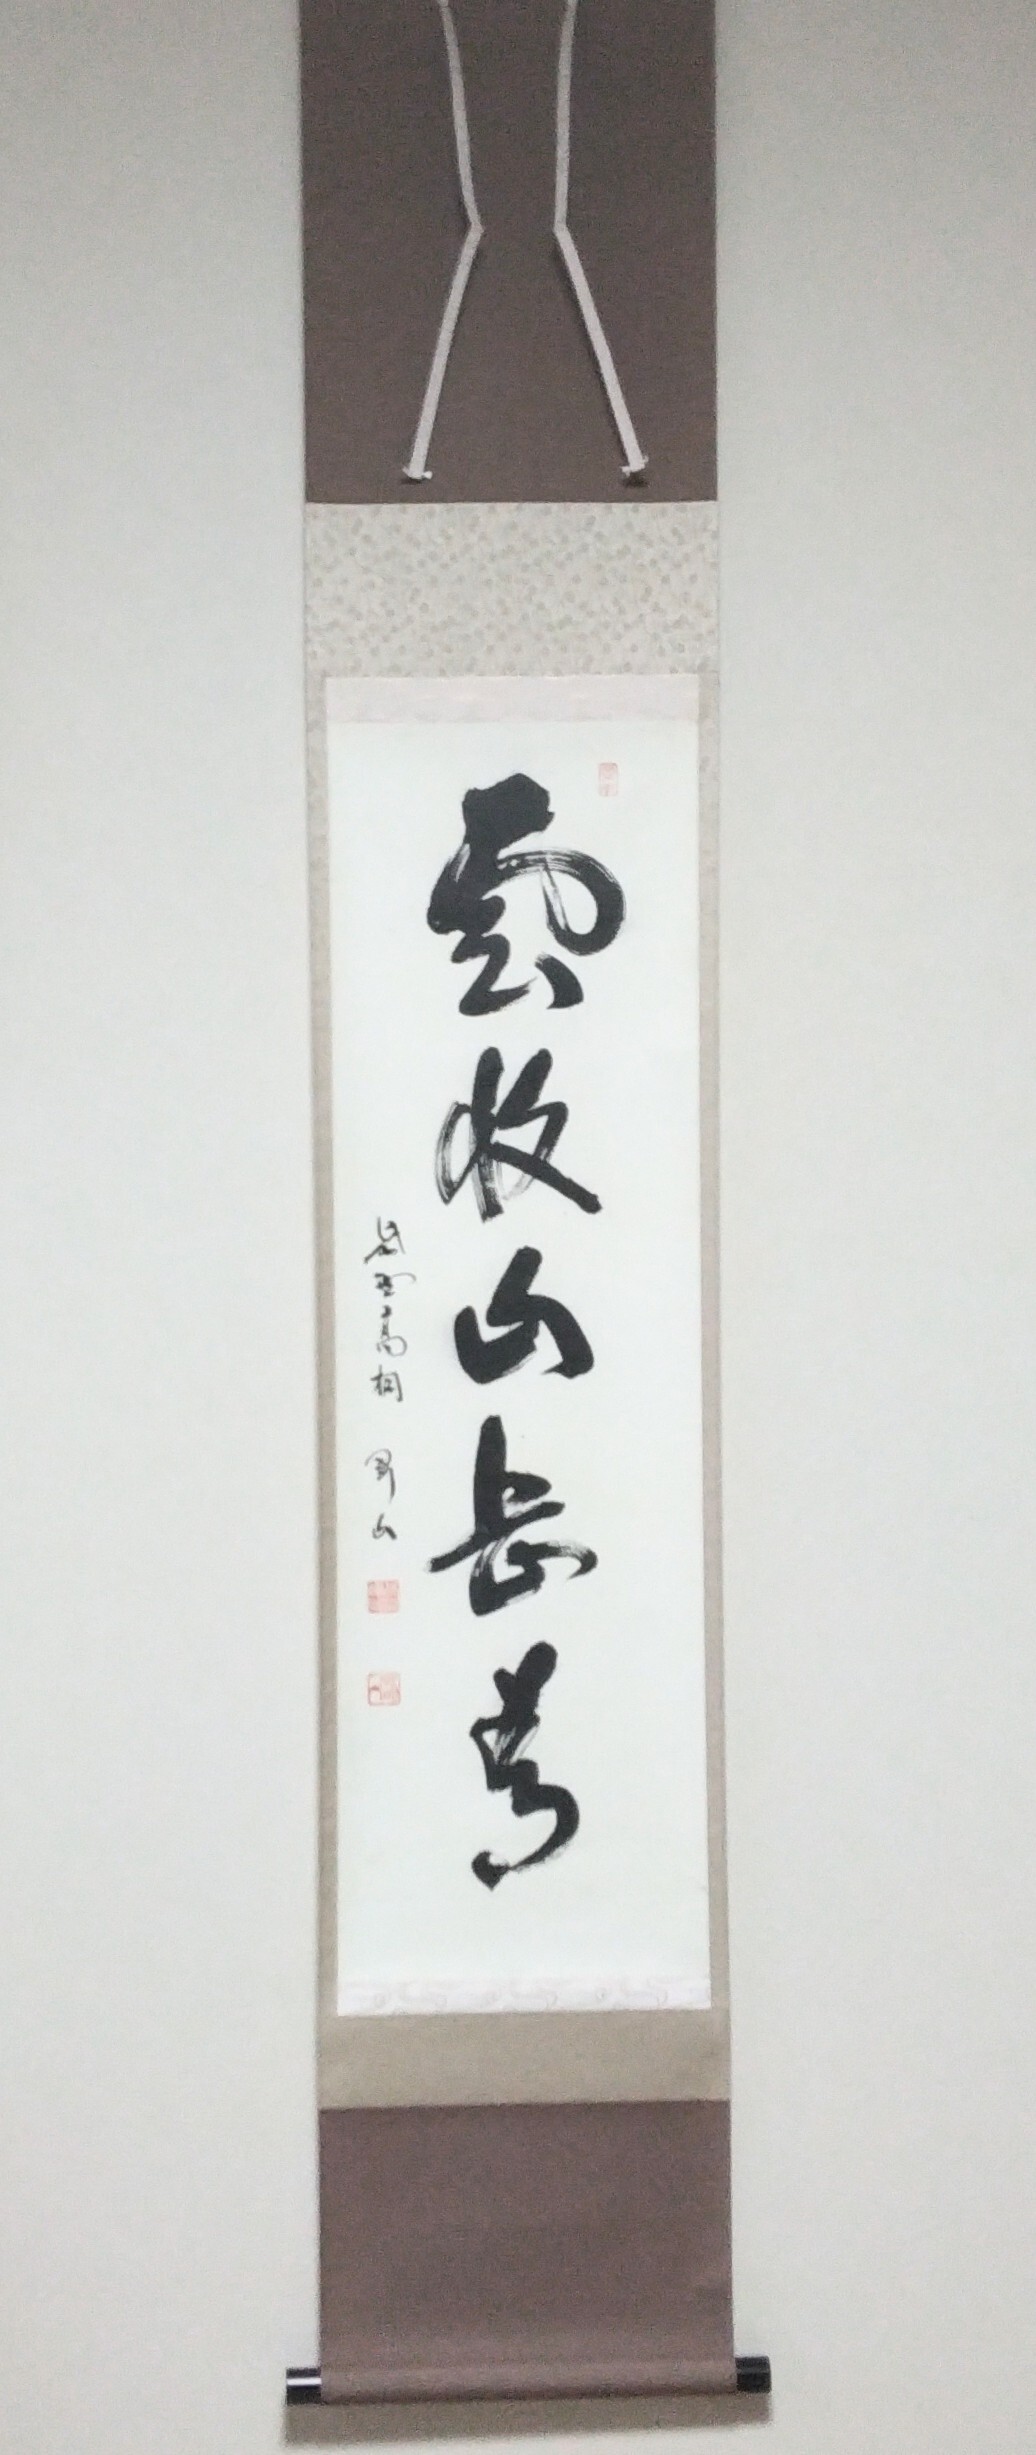 雲收山岳青
紫野高桐 寛山